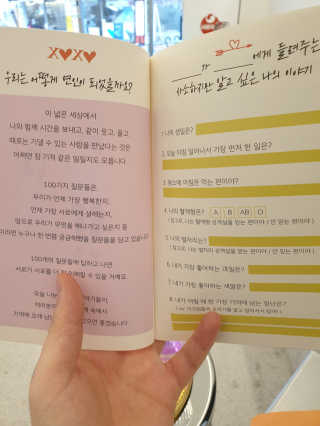 X♥X♥
우리는 어떻게 연인이 되었을까요?
이 넓은 세상에서
나와 함께 시간을 보내고, 같이 웃고, 울고
때로는 기댈 수 있는 사람을 만났다는 것은
어쩌면 참 기적 같은 일일지도 모릅니다
100가지 질문들은,
우리가 언제 가장 행복한지,
언제 가장 서로에게 설레는지,
앞으로 우리가 무엇을 해나가고 싶은지 등
누구나 한 번쯤 궁금해했을 질문들을 담고 있습니다
100개의 질문들에 답하고 나면
서로가 서로를 더 수 있을 거예요
오늘 나누
기억에 오래 남 좋겠습니다
에게 들려주는
사소하지만 알고 싶은 나의 이야기
1. 나의 생일은?
2. 오늘 아침 일어나서 가장 먼저 한 일은?
3. 평소에 아침은 먹는 편이야?
4. 나의 혈액형은? A B AB O
5. 나의 별자리는?
6. 내가 가장 좋아하는 과일은?
7. 내가 가장 좋아하는 색깔은?
8. 내가 어릴 때 한 가장 기억에 남는 장난은?